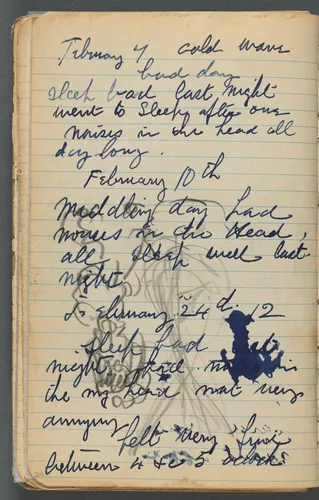 February 4 cold wave
bad day
Sleep bad last night
went to Sleep after one
noises in the head all
day long.
February 10th
Middling day had
noises in the Head,
all Sleep well last
night
February 24th 12
Sleep bad
night
the my head not very
annoying
felt very fine
between 4 & 5 oclock